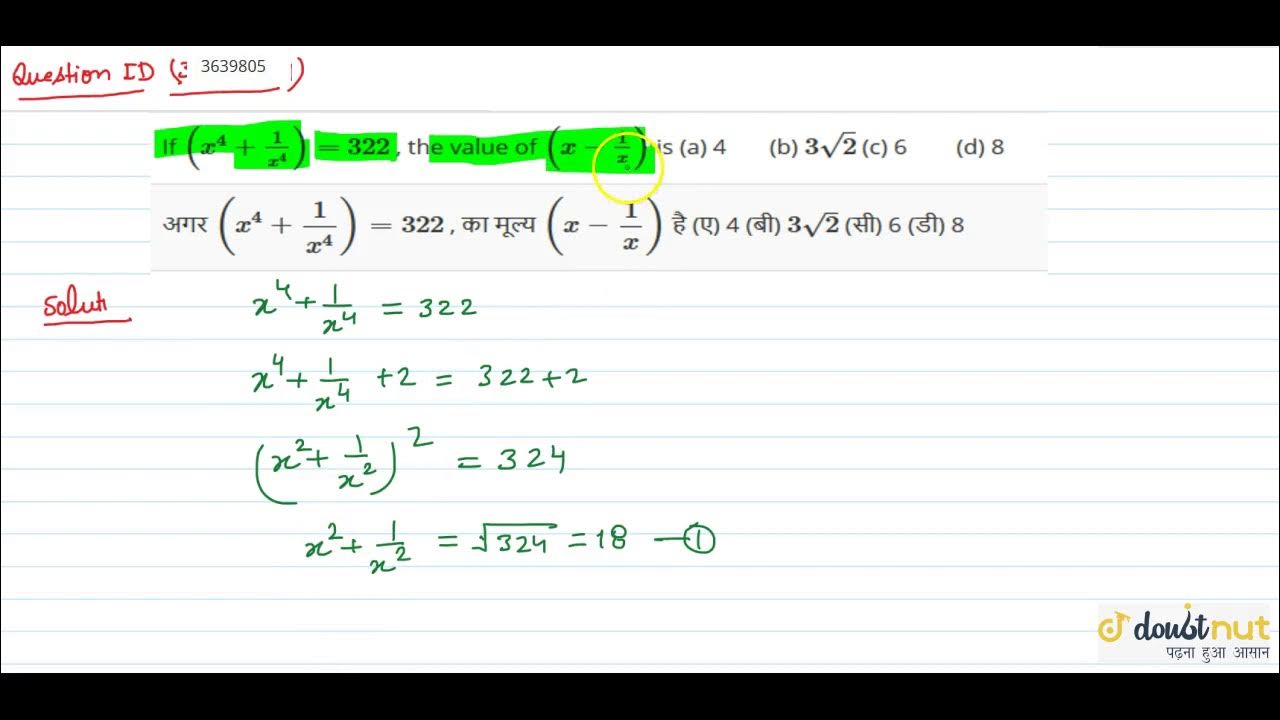 Question ID (3 3639805 1)
If (x⁴ + 1/x⁴) = 322, the value of (x − 1/x) is (a) 4 (b) 3√2 (c) 6 (d) 8
अगर (x⁴ + 1/x⁴) = 322, का मूल्य (x − 1/x) है (ए) 4 (बी) 3√2 (सी) 6 (डी) 8
Soluti
x⁴ + 1/x⁴ = 322
x⁴ + 1/x⁴ + 2 = 322 + 2
(x² + 1/x²)² = 324
x² + 1/x² = √324 = 18 — ①
doubtnut
पढ़ना हुआ आसान